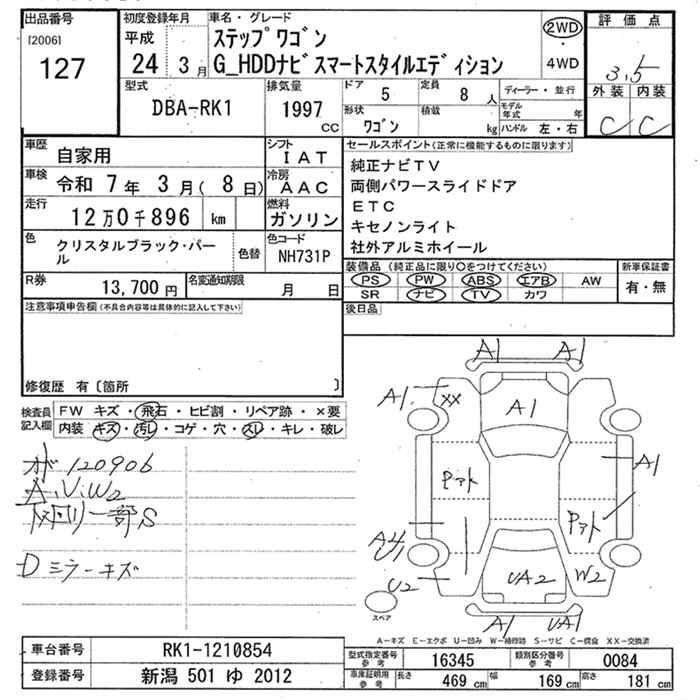 出品番号
[2006]
127
初度登録年月
平成
24 3月
車名・グレード
ステップワゴン
G_HDDナビスマートスタイルエディション
2WD
・
4WD
評価点
3.5
外装 内装
C C
型式
DBA-RK1
排気量
1997
CC
ドア
5
定員
8 人
形状
ワゴン
積載
kg
ディーラー・並行
モデル年式 年
ハンドル 左・右
車歴
自家用
シフト
IAT
車検
令和 7年 3月( 8日)
冷房
AAC
走行
12万0千896 km
燃料
ガソリン
色
クリスタルブラック・パール
色替
色コード
NH731P
R券
13,700 円
名変通知期限
月 日
セールスポイント(正常に機能するものに限ります)
純正ナビTV
両側パワースライドドア
ETC
キセノンライト
社外アルミホイール
装備品(純正品に限り○をつけてください)
新車保証書
PS PW ABS エアB AW
SR ナビ TV カワ
有・無
後日品
注意事項申告欄(不具合内容等は具体的に記入して下さい)
修復歴 有〔箇所 〕
検査員記入欄
FW キズ・飛石・ヒビ割・リペア跡・×要
内装 キズ・汚レ・コゲ・穴・スレ・キレ・破レ
120906
A,U,W2
下回リ一部S
Dミラーキズ
A1 A1
A1 XX
A1
A1
Pアト
Pアト
A4
U1
U2
UA2
W2
A1 UA1
スペア
A-キズ E-エクボ U-凹み W-補修跡 S-サビ C-腐食 XX-交換済
車台番号
RK1-1210854
登録番号
新潟 501 ゆ 2012
型式指定番号
参考
16345
類別区分番号
参考
0084
車庫証明用
参考
長さ 469 cm 幅 169 cm 高さ 181 cm